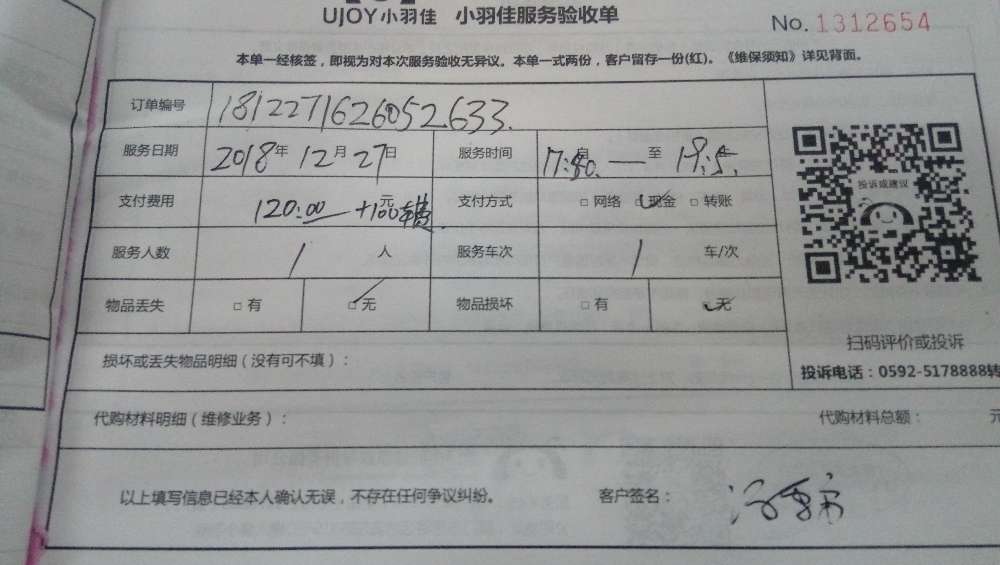 UJOY小羽佳 小羽佳服务验收单
No. 1312654
本单一经核签，即视为对本次服务验收无异议。本单一式两份，客户留存一份(红)。《维保须知》详见背面。
订单编号 1812271626052633.
服务日期 2018年 12月 27日 服务时间 17:80. 至
支付费用 120:00 元 +100 支付方式 □ 网络 □ 现金 □ 转账
投诉或建议
服务人数 1 人 服务车次 1 车/次
物品丢失 □ 有 □ 无 物品损坏 □ 有 □ 无
扫码评价或投诉
损坏或丢失物品明细（没有可不填）：
投诉电话：0592-5178888转
代购材料明细（维修业务）： 代购材料总额： 元
以上填写信息已经本人确认无误，不存在任何争议纠纷。 客户签名：